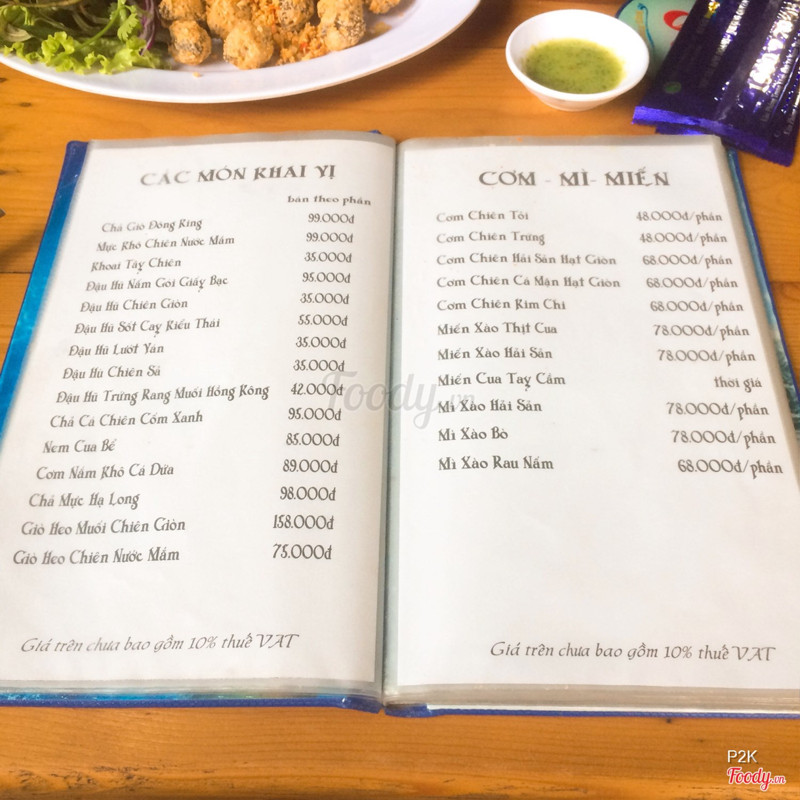 CÁC MÓN KHAI VỊ
bán theo phần
Chả Giò Đồng Ring 99.000đ
Mực Khô Chiên Nước Mắm 99.000đ
Khoai Tây Chiên 35.000đ
Đậu Hủ Nấm Gói Giấy Bạc 95.000đ
Đậu Hủ Chiên Giòn 35.000đ
Đậu Hủ Sốt Cay Kiểu Thái 55.000đ
Đậu Hủ Lướt Ván 35.000đ
Đậu Hủ Chiên Sả 35.000đ
Đậu Hủ Trứng Rang Muối Hồng Kông 42.000đ
Chả Cá Chiên Cốm Xanh 95.000đ
Nem Cua Bể 85.000đ
Cơm Nắm Khô Cá Dứa 89.000đ
Chả Mực Hạ Long 98.000đ
Giò Heo Muối Chiên Giòn 158.000đ
Giò Heo Chiên Nước Mắm 75.000đ
Giá trên chưa bao gồm 10% thuế VAT
CƠM - MÌ- MIẾN
Cơm Chiên Tỏi 48.000đ/phần
Cơm Chiên Trứng 48.000đ/phần
Cơm Chiên Hải Sản Hạt Giòn 68.000đ/phần
Cơm Chiên Cá Mặn Hạt Giòn 68.000đ/phần
Cơm Chiên Kim Chi 68.000đ/phần
Miến Xào Thịt Cua 78.000đ/phần
Miến Xào Hải Sản 78.000đ/phần
Miến Cua Tay Cầm thời giá
Mì Xào Hải Sản 78.000đ/phần
Mì Xào Bò 78.000đ/phần
Mì Xào Rau Nấm 68.000đ/phần
Giá trên chưa bao gồm 10% thuế VAT
Foody.vn
P2K
Foody.vn